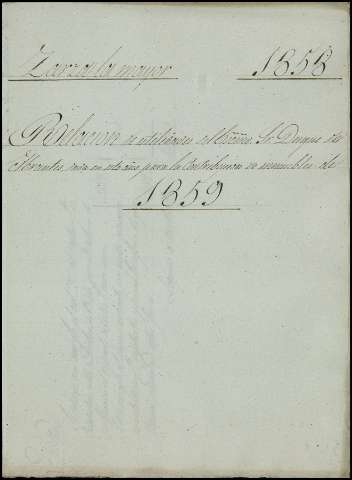 Zarza la mayor 1858
Relacion de utilidades del Exmo. Sr. Duque de
Abrantes, en este año para la Contribucion de inmuebles de
1859